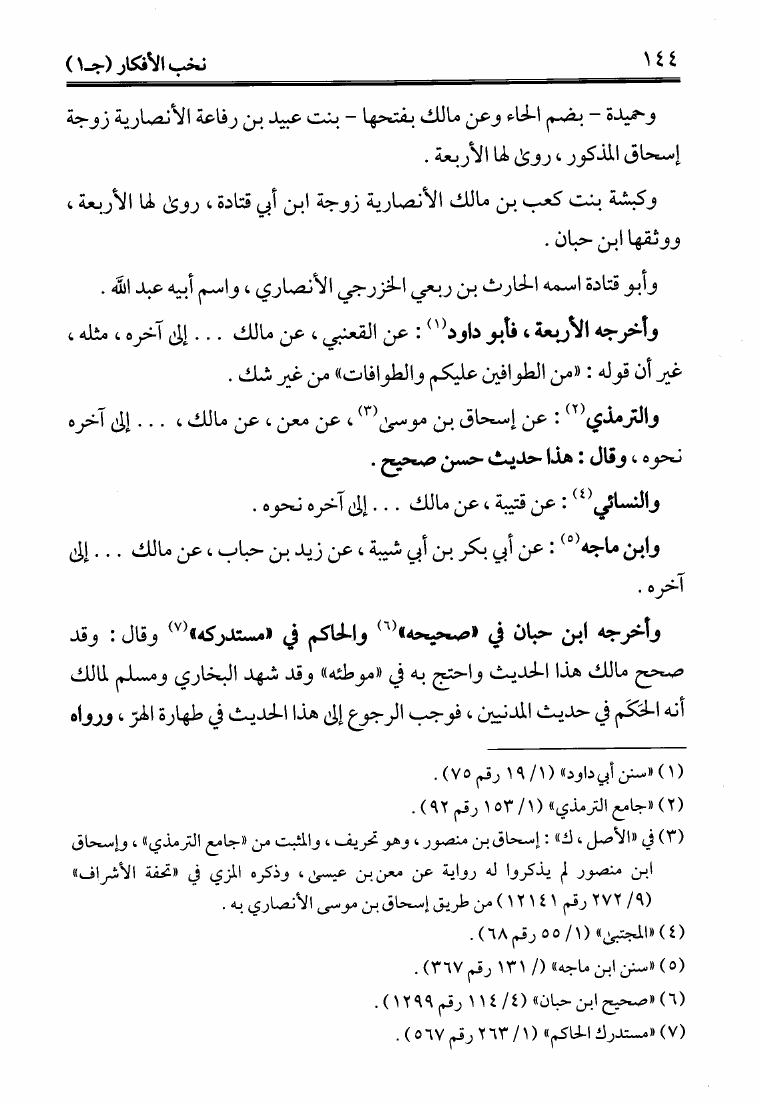 ١٤٤ نخب الأفكار (جـ١)
وحميدة - بضم الحاء وعن مالك بفتحها - بنت عبيد بن رفاعة الأنصارية زوجة
إسحاق المذكور ، روىٰ لها الأربعة .
وكبشة بنت كعب بن مالك الأنصارية زوجة ابن أبي قتادة ، روىٰ لها الأربعة ،
ووثقها ابن حبان .
وأبو قتادة اسمه الحارث بن ربعي الخزرجي الأنصاري ، واسم أبيه عبد الله .
وأخرجه الأربعة ، فأبو داود(١) : عن القعنبي ، عن مالك ... إلى آخره ، مثله ،
غير أن قوله : «من الطوافين عليكم والطوافات» من غير شك .
والترمذي(٢) : عن إسحاق بن موسىٰ(٣) ، عن معن ، عن مالك ، ... إلى آخره
نحوه ، وقال : هذا حديث حسن صحيح .
والنسائي(٤) : عن قتيبة ، عن مالك ... إلى آخره نحوه .
وابن ماجه(٥) : عن أبي بكر بن أبي شيبة ، عن زيد بن حباب ، عن مالك ... إلى
آخره .
وأخرجه ابن حبان في «صحيحه»(٦) والحاكم في «مستدركه»(٧) وقال : وقد
صحح مالك هذا الحديث واحتج به في «موطئه» وقد شهد البخاري ومسلم لمالك
أنه الحَكَم في حديث المدنيين ، فوجب الرجوع إلى هذا الحديث في طهارة الهرّ ، ورواه
(١) «سنن أبي داود» (١/ ١٩ رقم ٧٥) .
(٢) «جامع الترمذي» (١/ ١٥٣ رقم ٩٢) .
(٣) في «الأصل ، ك» : إسحاق بن منصور ، وهو تحريف ، والمثبت من «جامع الترمذي» ، وإسحاق
ابن منصور لم يذكروا له رواية عن معن بن عيسىٰ ، وذكره المزي في «تحفة الأشراف»
(٩/ ٢٧٢ رقم ١٢١٤١) من طريق إسحاق بن موسى الأنصاري به .
(٤) «المجتبىٰ» (١/ ٥٥ رقم ٦٨) .
(٥) «سنن ابن ماجه» (/ ١٣١ رقم ٣٦٧) .
(٦) «صحيح ابن حبان» (٤/ ١١٤ رقم ١٢٩٩) .
(٧) «مستدرك الحاكم» (١/ ٢٦٣ رقم ٥٦٧) .